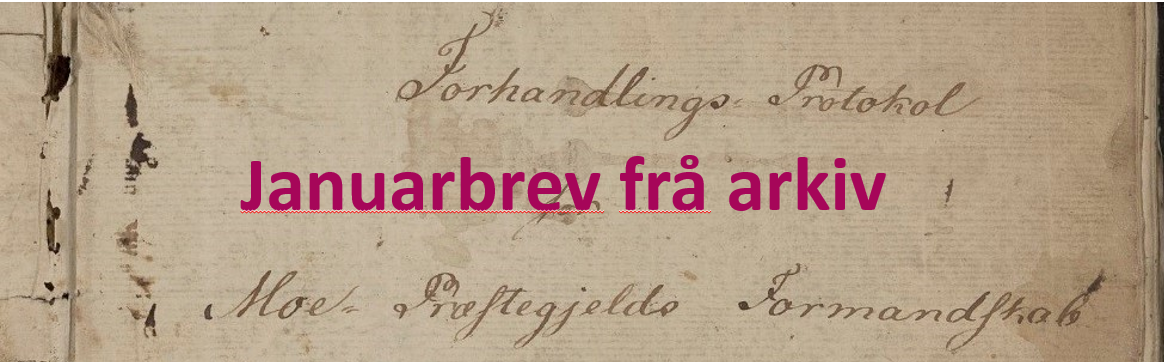 Forhandlings- Protokol
Januarbrev frå arkiv
for
Moe- Præstegjelds Formandskab